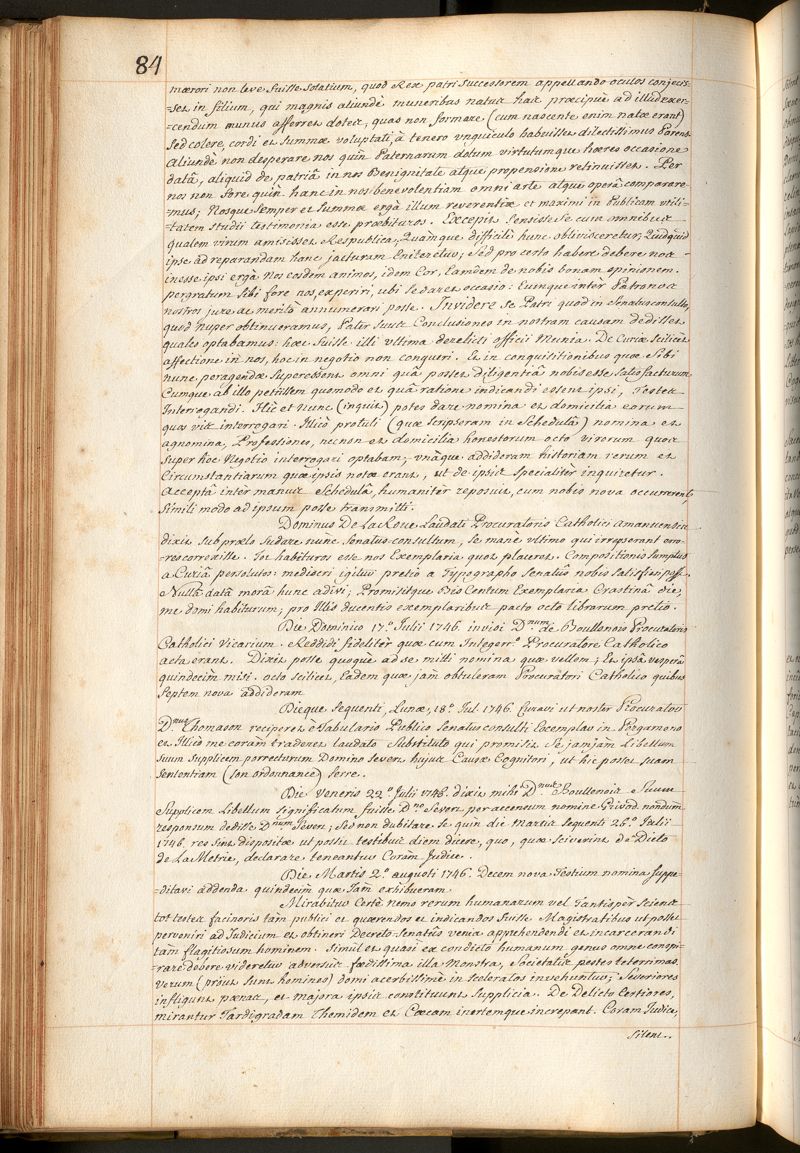 84
mœrori non leve fuisse solatium, quod Rex patri successorem appellando oculos conjecis=
=set in filium, qui magnis aliundè muneribus natus has præcipuè ad illud exer=
=cendum munus afferret dotes, quas non formare (cum nascente enim natæ erant)
sed colere, cordi et summæ voluptati, à tenero unguiculo habuisset dilectissimus Parens.
Aliundè non desperare nos quin Paternarum dotum virtutumque hæres occasione
datâ, aliquid de patriâ in nos Benignitate atque propensione retinuisset. Per
nos non fore quin hanc in nos benevolentiam omni arte atque operâ compararo=
=mus; Nosque semper et summæ ergà illum reverentiæ et maximi in Publicam utili=
=tatem studii testimonia esse præbituros. Excepit sensisse se cum omnibus
qualem virum amisisset Respublica, Quàmque difficile hunc oblivisceretur, Quidquid
ipse ad reparandam hanc jacturam Eniteretur; Sed pro certo habere debere nos
inesse ipsi ergà Nos eosdem animos, idem Cor, tamdem de nobis bonam opinionem.
pergratum sibi fore nos, experiri, ubi se daret occasio: Eumque inter Patronos
nostros jure ac meritò annumerari posse. Invidere se Patri quod in Senatusconsulto,
quod nuper obtinueramus, Pater suas Conclusiones in nostram causam dedisset
quales optabamus: hæc fuisse illi ultima derelicti officii Munia. De Curiæ scilicet
affectione in nos, hoc in negotio non conqueri. Et in conquisitionibus quæ Sibi
nunc peragendæ superessent omni quâ posset diligentiâ nobis esse satisfacturum
Cumque ab illo petiissem quomodo et quâ ratione indicandi essent ipsi, Testes
Interrogandi. Hîc et Nunc (inquit) potes dare nomina et domicilia eorum
quos vis interrogari. Illicò protuli (quæ scripseram in Schedulâ) nomina et
agnomina, Professiones, necnon et domicilia honestorum octo virorum quos
super hoc Negotio interrogari optabam; unàque addideram historiam rerum et
Circumstantiarum quæ ipsis notæ erant, ut de ipsis specialiter inquiretur.
Acceptâ inter manus Schedulâ, humaniter reposuit, cum nobis nova occurrerent,
simili modo ad ipsum posse transmitti.
Dominus De La Roue Laudati Procuratoris Catholici amanuensis
dixit sub prælo sudare nunc Senatus-consultum, se mane ultimo qui irrepserant erro-
=res correxisse. Tot habituros esse nos Exemplaria quot placeret. Compositionis sumptus
a Curiâ persolutos: mediocri igitur pretio a Typographo Senatûs nobis satisfieri posse.
Nullâ datâ morâ hunc adivi; Promisitque Bis Centum Exemplaria Crastinâ die,
me domi habiturum; pro Illis ducentis exemplaribus pacto octo librarum pretio.
Die Dominico 17.º Julii 1746. invisi D.num de Boullenois Procuratoris
Catholici Vicarium. Reddidi fideliter quæ cum Integerr.º Procuratore Catholico
acta erant. Dixit posse quoque ad se mitti nomina quæ vellem; Et ipsâ vesperâ
quindecim misi. octo scilicet, Eadem quæ jam obtuleram Procuratori Catholico quibus
Septem nova addideram
Dieque sequenti, Lunæ, 18.º Jul 1746. Curavi ut noster Procurator
D.nus Thomason reciperet è Tabulario Publico Senatusconsulti Exemplar in Pergameno
et Illicò me coram traderet laudato Substituto qui promisit se jamjam Libellum
suum Supplicem porrecturum Domino Severt hujus Causæ Cognitori, ut hic posset suam
sententiam (son ordonnance) ferre.
Die Veneris 22.º Julii 1746. dixit mihi D.nus Boullenois Suum
Supplicem Libellum significatum fuisse D.no Severt per accensum nomine nondum
responsum dedisse D.num Severt; Sed non dubitare se quin die Martis sequenti 26.º Julii
1746. res sint dispositæ ut possit testibus diem dicere, quo, quæ sciverint de Dicto
de La Metrie, declarare teneantur Coram Judice.
Die Martis 2.º augusti 1746. Decem nova Testium nomina suppe=
=ditavi addenda quindecim quæ Jam exhibueram
Mirabitur Certè nemo rerum humanarum vel tantisper sciens
tot testes facinoris tam publici et quærendos et indicandos fuisse Magistratibus ut posset
perveniri ad Judicium et obtineri Decreto Senatûs venia apprehendendi et incarcerandi
tàm flagitiosum hominem. Simul et quasi ex condicto humanum genus omne conspi=
=rare debere videretur adversus fædissima illa Monstra, Societatis pestes teterrimas.
verum (prout sunt homines) domi acerbissimè in sceleratos invehuntur; Severiores
infligunt pænas, et majora ipsis constituunt Supplicia. De Delicto Certiores,
mirantur Tardigradam Themidem et Cæcam inertemque increpant. Coram Judice,
silent..